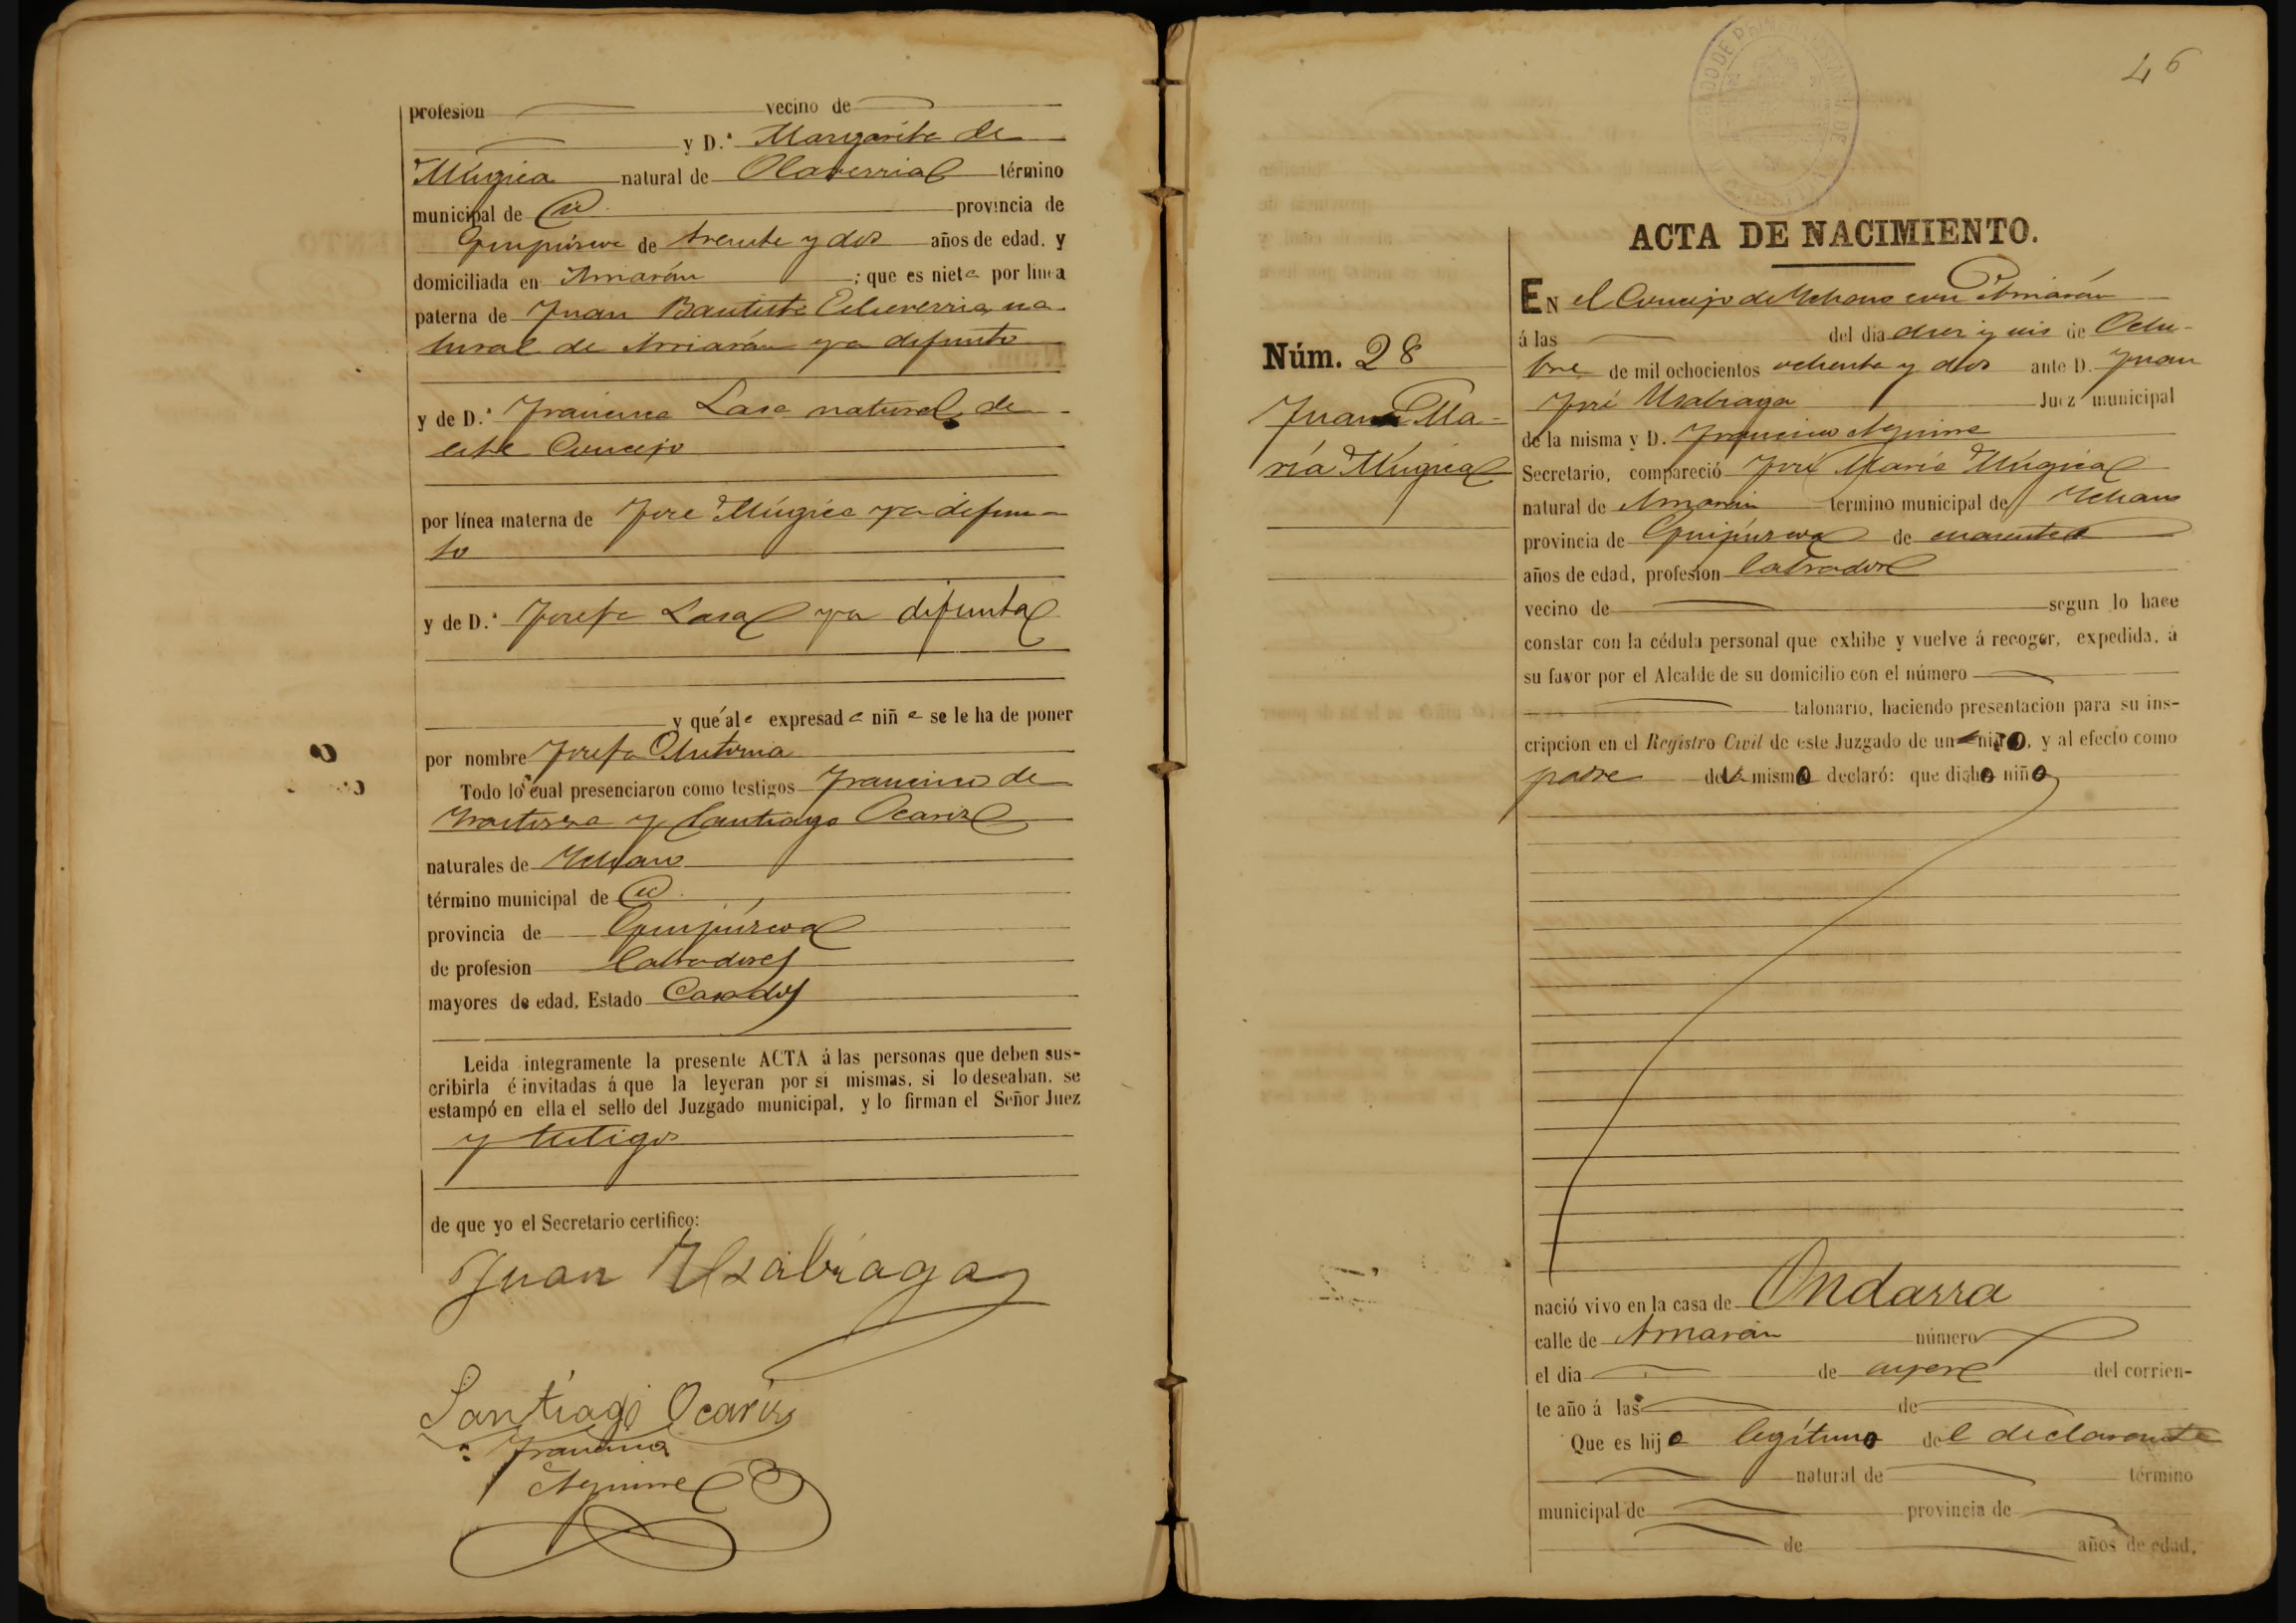 profesion vecino de
y D.ª Margarita de
Múgica natural de Olaverria término
municipal de id. provincia de
Guipúzcoa de treinta y dos años de edad, y
domiciliada en Arriarán ; que es nieta por línea
paterna de Juan Bautista Echeverria, na-
tural de Arriarán ya difunto
y de D.ª Francisca Lasa natural de
este Concejo
por línea materna de José Múgica ya difun-
to
y de D.ª Josefa Lasa ya difunta
y que á la expresada niña se le ha de poner
por nombre Josefa Antonia
Todo lo cual presenciaron como testigos Francisco de
y Santiago Ocariz
naturales de Ichaso
término municipal de id.
provincia de Guipúzcoa
de profesion labradores
mayores de edad, Estado Casados
Leida integramente la presente ACTA á las personas que deben sus-
cribirla é invitadas á que la leyeran por si mismas, si lo deseaban, se
estampó en ella el sello del Juzgado municipal, y lo firman el Señor Juez
y testigos
de que yo el Secretario certifico:
Juan Usabiaga
Santiago Ocariz
Francisco
Aguirre
46
ACTA DE NACIMIENTO.
EN el Concejo de Ichaso con Arriarán
á las del dia diez y seis de Octu-
Núm. 28
bre de mil ochocientos ochenta y dos ante D. Juan
José Usabiaga Juez municipal
Juana Ma-
ría Múgica
de la misma y D. Francisco Aguirre
Secretario, compareció José María Múgica
natural de Arriarán termino municipal de Ichaso
provincia de Guipúzcoa de cuarenta
años de edad, profesion labrador
vecino de segun lo hace
constar con la cédula personal que exhibe y vuelve á recoger, expedida, á
su favor por el Alcalde de su domicilio con el número
talonario, haciendo presentacion para su ins-
cripcion en el Registro Civil de este Juzgado de un niño, y al efecto como
padre del mismo declaró: que dicho niño
nació vivo en la casa de Ondarra
calle de Arriarán número
el dia de ayer del corrien-
te año á las de
Que es hijo legítimo del declarante
natural de término
municipal de provincia de
de años de edad,